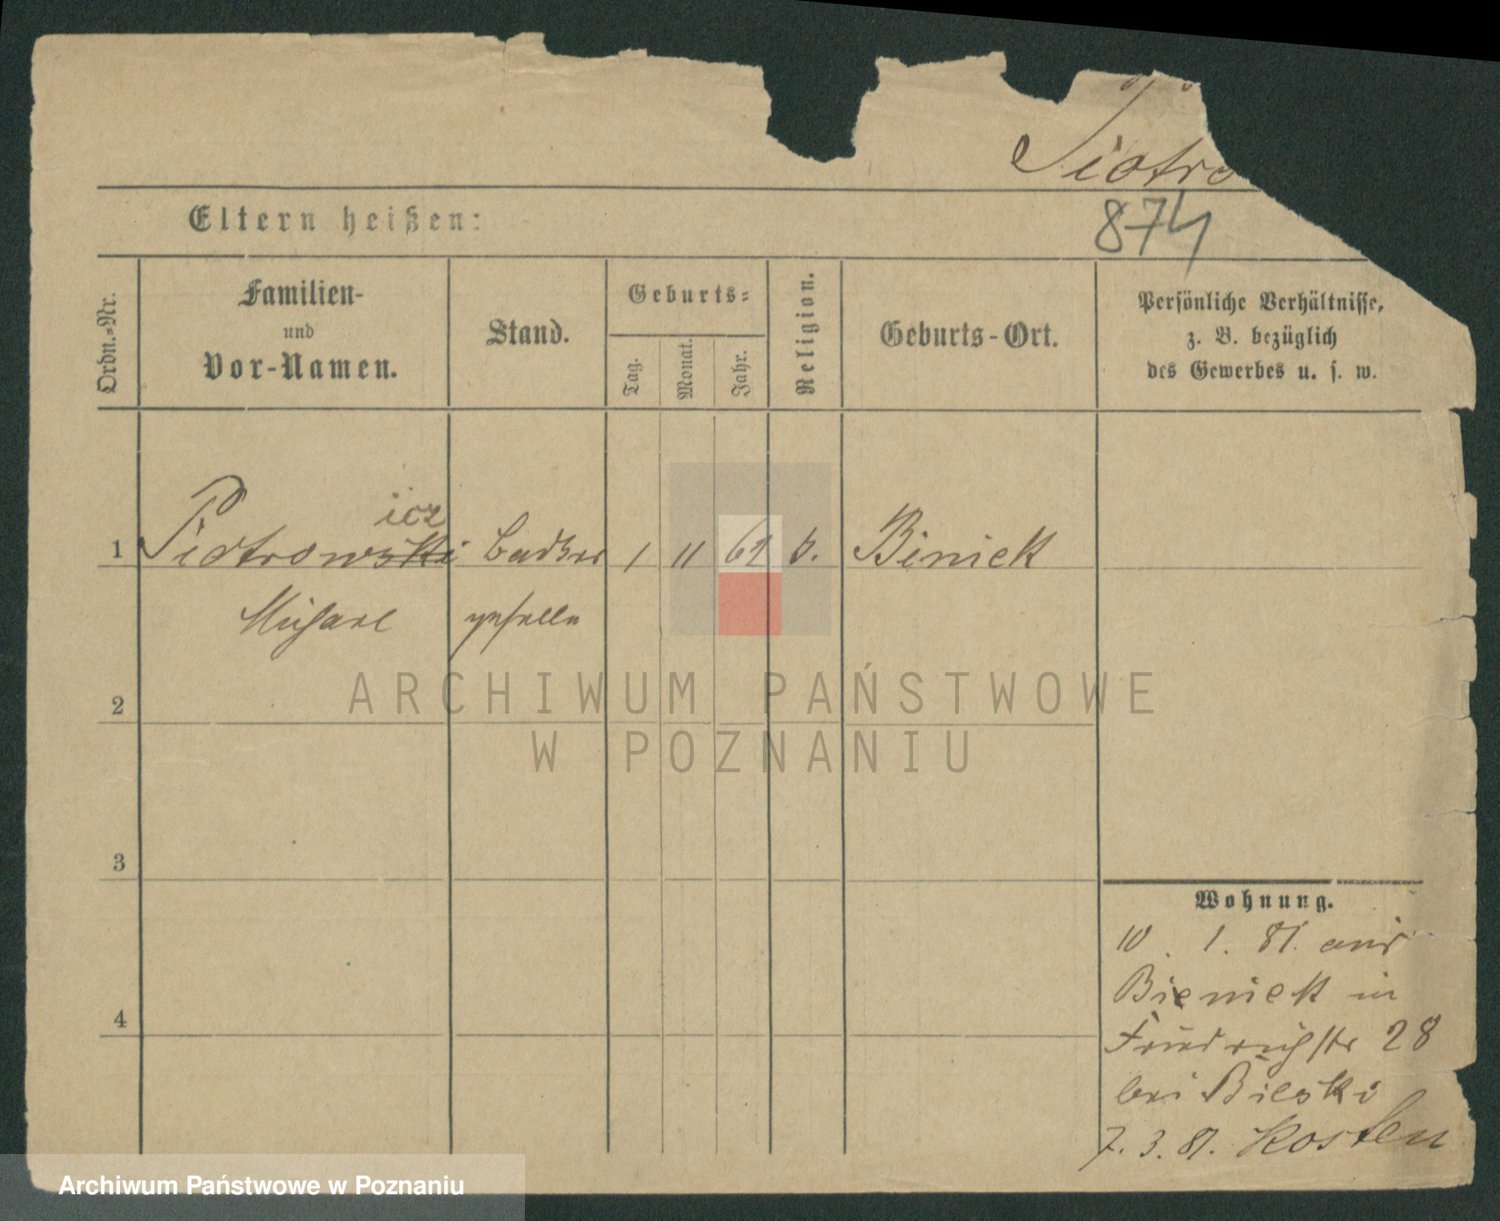 Piotro
874
Eltern heißen:
Ordn.=Nr.
Familien-
und
Vor-Namen.
Stand.
Geburts=
Tag.
Monat.
Jahr.
Religion.
Geburts-Ort.
Persönliche Verhältnisse,
z. B. bezüglich
des Gewerbes u. s. w.
icz
1 Piotrowski 1 11 61 k. Biniek
Michael geselle
2
3
4
Wohnung.
10. 1. 81. aus
Bieniek in
Friedrichstr 28
bei Bieski
7. 3. 81. Kosten
ARCHIWUM PAŃSTWOWE
W POZNANIU
Archiwum Państwowe w Poznaniu